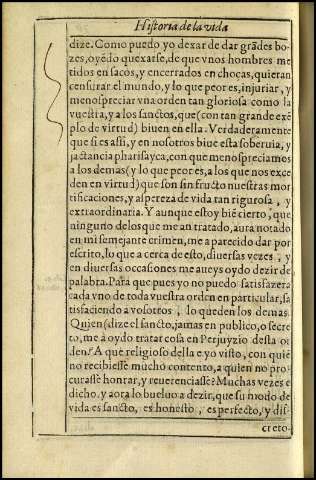 Historia de la vida
dize. Como puedo yo dexar de dar grãdes bo-
zes, oyẽdo quexarse, de que vnos hombres me
tidos en sacos, y encerrados en chocas, quieran
censurar el mundo, y lo que peor es, injuriar, y
menospreciar vna orden tan gloriosa como la
vuestra, y a los sanctos, que (con tan grande exẽ
plo de virtud) biuen en ella. Verdaderamente
que si es assi, y en nosotros biue esta soberuia, y
jactancia pharisayca, con que menospreciamos
a los demas (y lo que peor es, a los que nos exce
den en virtud) que son sin fructo nuestras mor
tificaciones, y aspereza de vida tan rigurosa, y
extraordinaria. Y aunque estoy biẽ cierto, que
ninguno de los que me an tratado, aura notado
en mi semejante crimen, me a parecido dar por
escrito, lo que a cerca de esto, diuersas vezes, y
en diuersas occasiones me aueys oydo dezir de
palabra. Para que pues yo no puedo satisfazer a
cada vno de toda vuestra orden en particular, sa
tisfaciendo a vosotros, lo queden los demas.
Quien (dize el sancto, jamas en publico, o secre
to, me a oydo tratar cosa en Perjuyzio desta or
den? A que religioso della e yo visto, con quiẽ
no recibiesse mucho contento, a quien no pro-
curasse honrar, y reuerenciasse? Muchas vezes e
dicho, y aora lo bueluo a dezir, que su modo de
vida es sancto, es honesto, es perfecto, y dis-
creto-